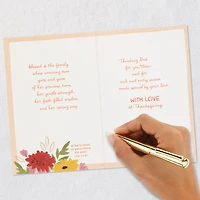 Blessed is the family
whose amazing mom
gets and gives
of her precious time,
her gentle strength,
her faith-filled wisdom,
and her caring way.
Thanking God
for you, Mom
and for
each and every season
made sweet by your love.
WITH LOVE
at Thanksgiving